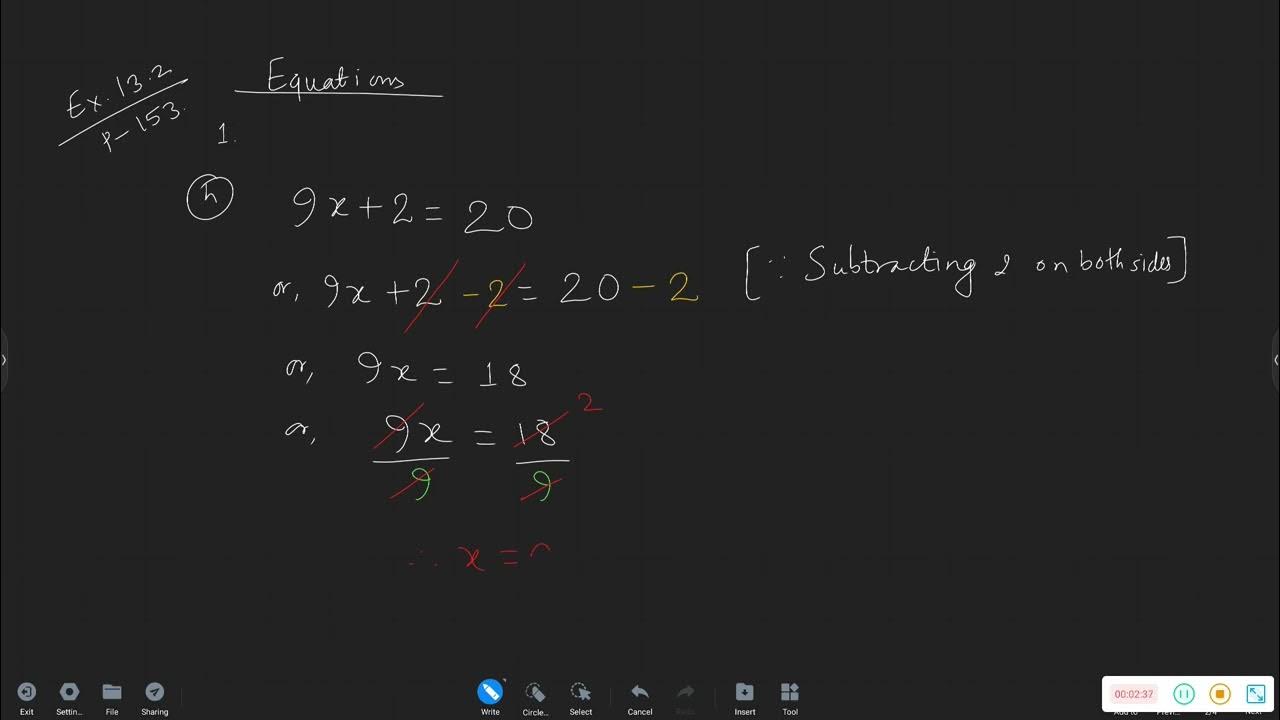 Ex. 13.2
p-153.
Equations
1.
h
9x+2=20
or, 9x+2-2=20-2 [∵ Subtracting 2 on both sides]
or, 9x=18
or, 9x/9 = 18/9 2
∴ x=
Exit Settin... File Sharing Write Circle.. Select Cancel Redo Insert Tool
00:02:37